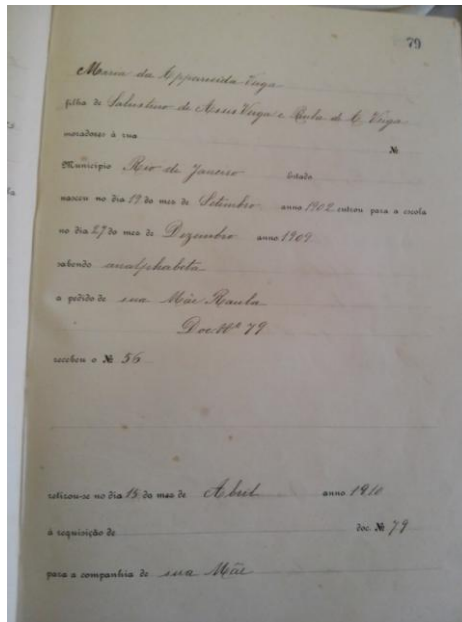 79
Maria da Apparecida Veiga
filha de Salustino de Assis Veiga e Paula de A. Veiga
moradores à rua
№
Municipio Rio de Janeiro Estado
nasceu no dia 19 do mez de Setembro anno 1902 entrou para a escola
no dia 27 do mez de Dezembro anno 1909
sabendo analphabeta
a pedido de sua Mãe Paula
Doc Nº 79
recebeu o № 56
retirou-se no dia 15 do mez de Abril anno 1910
à requisição de doc. № 79
para a companhia de sua Mãe